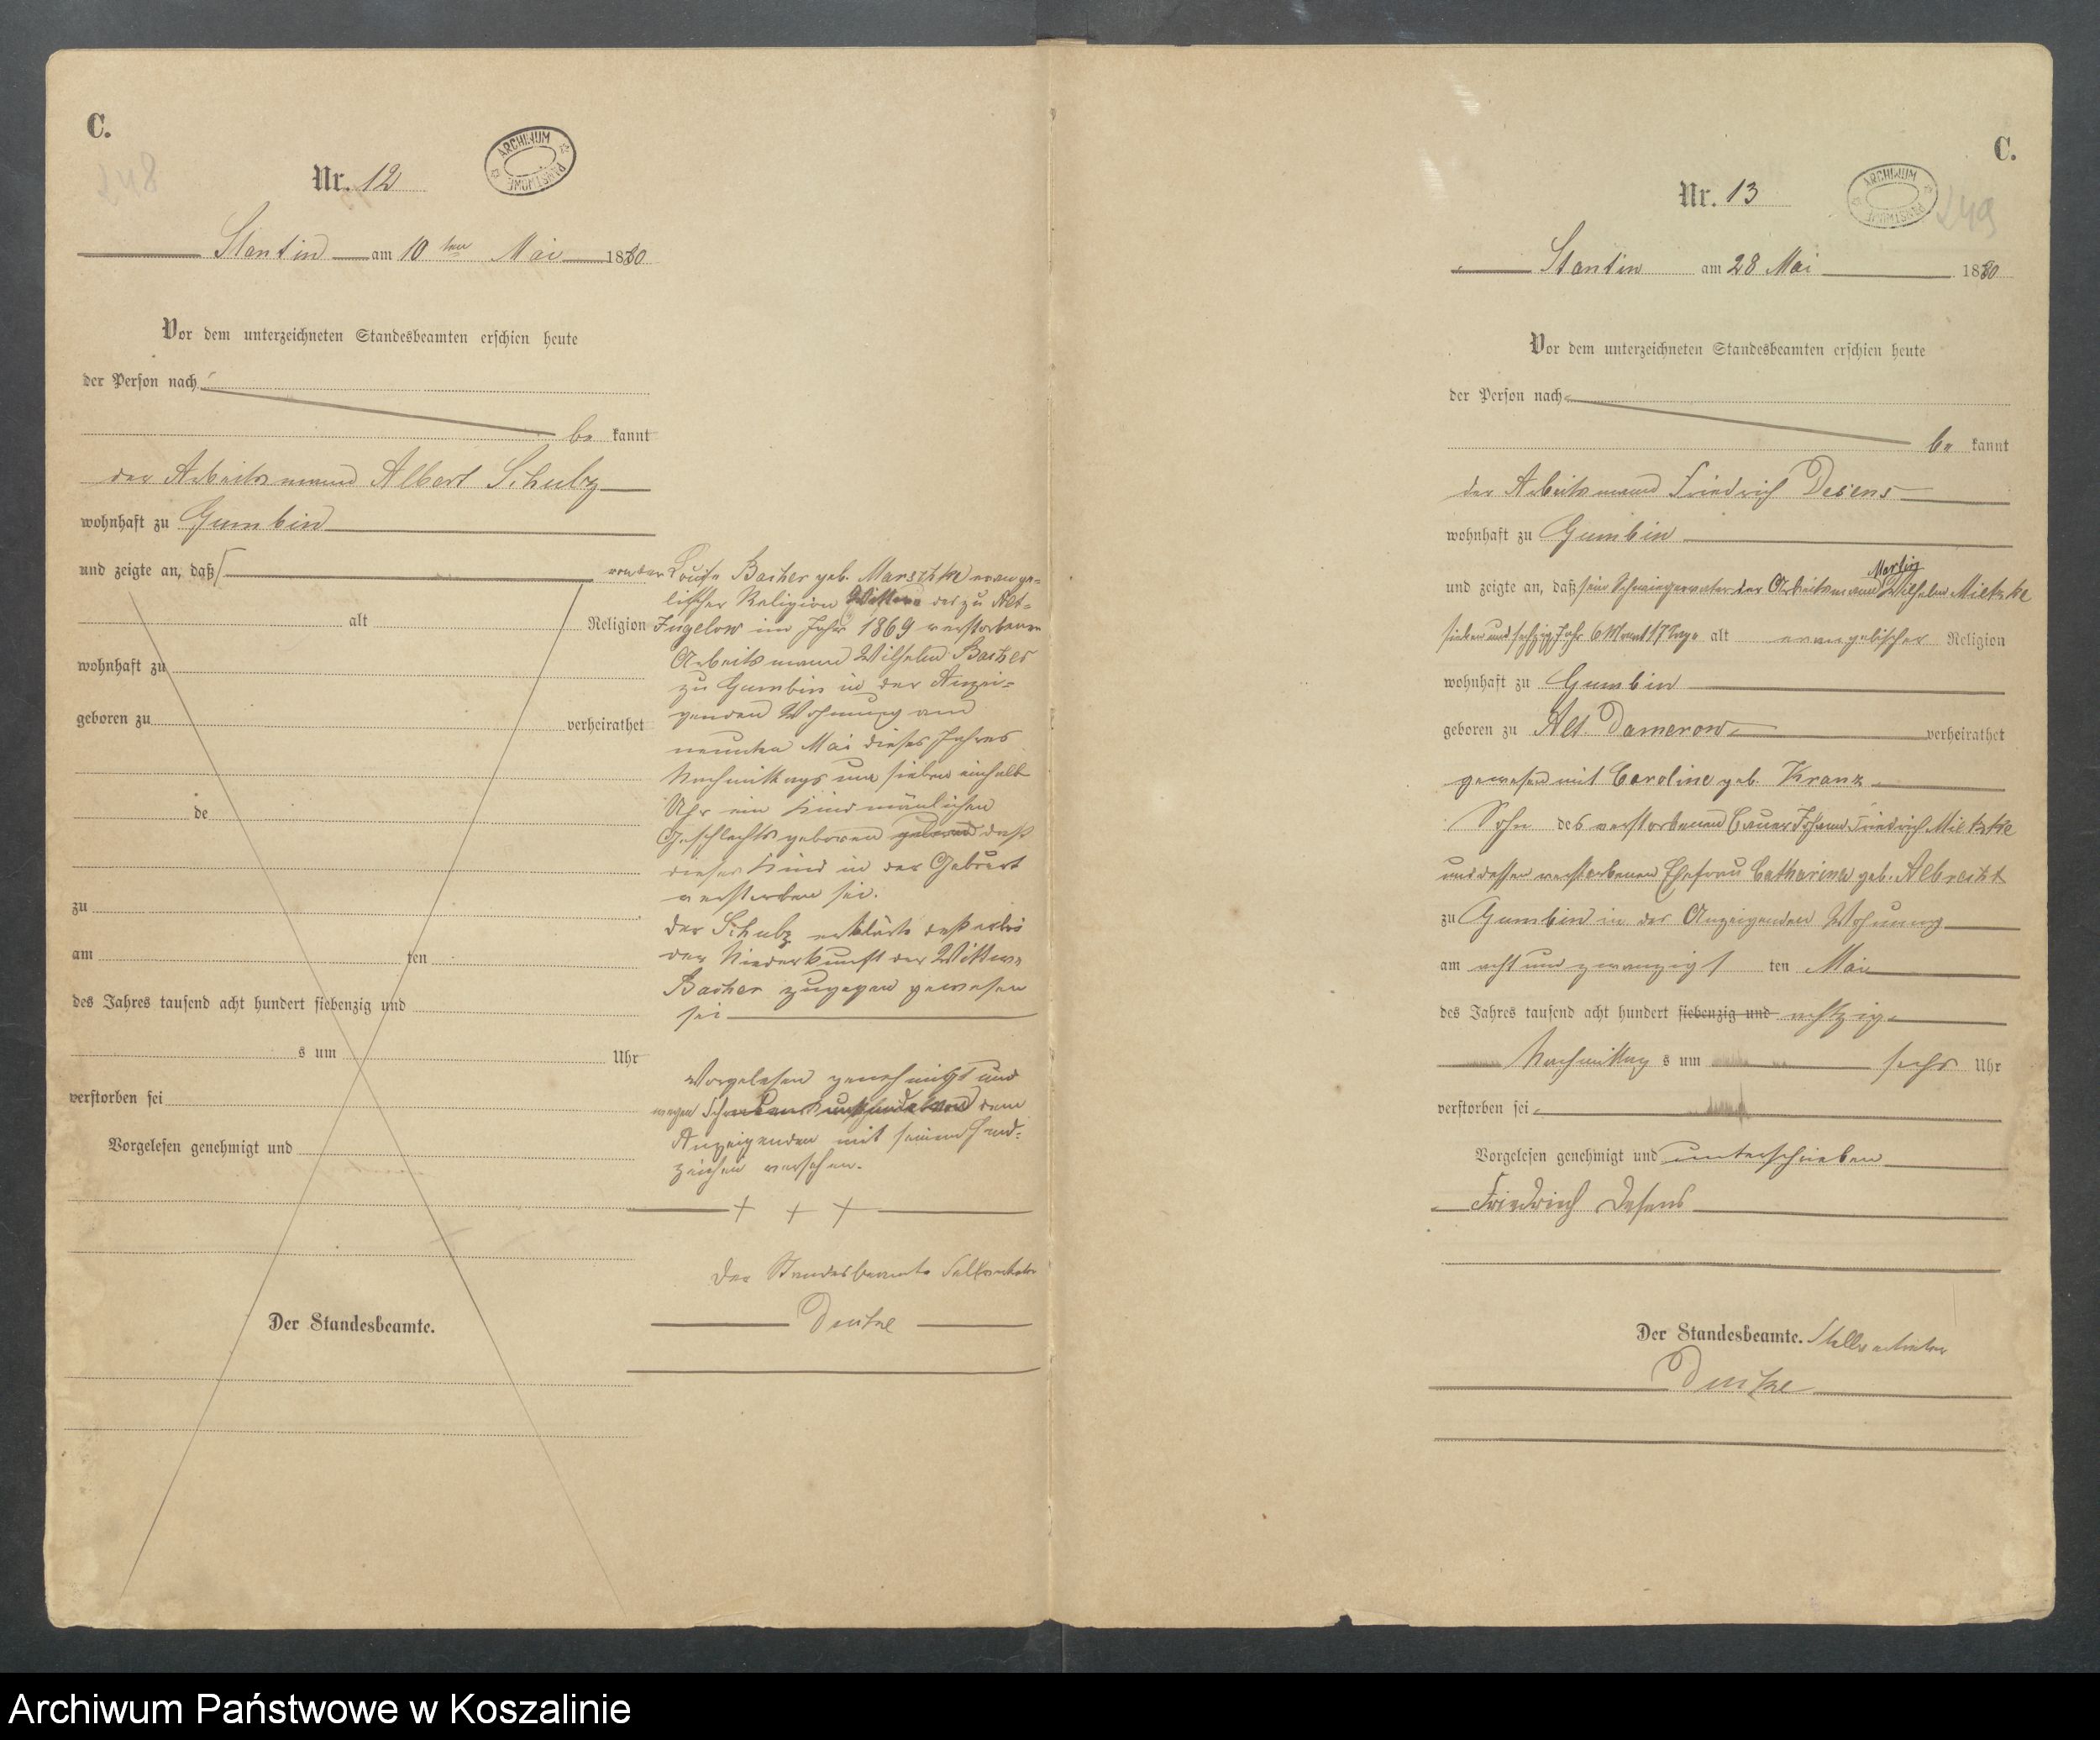 C.
248
Nr. 12
ARCHIWUM PAŃSTWOWE
Stantin am 10 ten Mai 1880
Vor dem unterzeichneten Standesbeamten erschien heute
der Person nach
be kannt
der Arbeitsmann Albert Schulz
wohnhaft zu Gumbin
und zeigte an, daß von der
alt Religion
wohnhaft zu
geboren zu verheirathet
de
zu
am ten
des Jahres tausend acht hundert siebenzig und
s um Uhr
verstorben sei
Vorgelesen genehmigt und
Der Standesbeamte.
Louise Bacher geb. Marschke evange-
lischer Religion Wittwe des zu Alt-
Jugelow im Jahr 1869 verstorbenen
Arbeitsmann Wilhelm Bacher
zu Gumbin in der Anzei-
genden Wohnung am
neunten Mai dieses Jahres
Nachmittags um sieben einhalb
Uhr ein Kind männlichen
Geschlechts geboren daß
dieses Kind in der Geburt
verstorben sei.
Der Schulz erklärte daß er bei
der Niederkunft der Wittwe
Bacher zugegen gewesen
sei
Vorgelesen genehmigt und
wegen Schreibensunkunde von dem
Anzeigenden mit seinem Hand-
zeichen versehen.
+ + +
Der Standesbeamte Stellvertreter
C.
249
Nr. 13
ARCHIWUM PAŃSTWOWE
Stantin am 28 Mai 1880
Vor dem unterzeichneten Standesbeamten erschien heute
der Person nach
be kannt
der Arbeitsmann Friedrich Desens
wohnhaft zu Gumbin
Martin
und zeigte an, daß sein Schwiegervater der Arbeitsmann Wilhelm Mietzke
sieben und sechzig Jahr 6 Monat 17 Tage alt evangelischer Religion
wohnhaft zu Gumbin
geboren zu Alt Damerow verheirathet
gewesen mit Caroline geb. Kranz
Sohn des verstorbenen Bauer Johann Friedrich Mietzke
und dessen verstorbenen Ehefrau Catharina geb. Albrecht
zu Gumbin in der Anzeigenden Wohnung
am acht und zwanzigs ten Mai
des Jahres tausend acht hundert siebenzig und achtzig
Nachmittag s um sechs Uhr
verstorben sei
Vorgelesen genehmigt und unterschrieben
Friedrich Desens
Der Standesbeamte. Stellvertreter
Archiwum Państwowe w Koszalinie